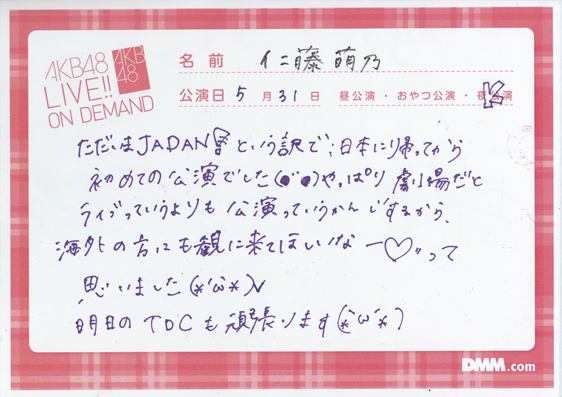 AKB48
LIVE!!
ON DEMAND
AKB
48
名前 仁藤萌乃
公演日 5月31日 昼公演・おやつ公演・夜公演
ただいまJAPAN という訳で、日本に帰ってから
初めての公演でした(●´●)やっぱり劇場だと
ライブっていうよりも公演っていうかんじするから、
海外の方にも観に来てほしいなー♡って
思いました(*'ω'*)v
明日のTDCも頑張ります(*'ω'*)
DMM.com